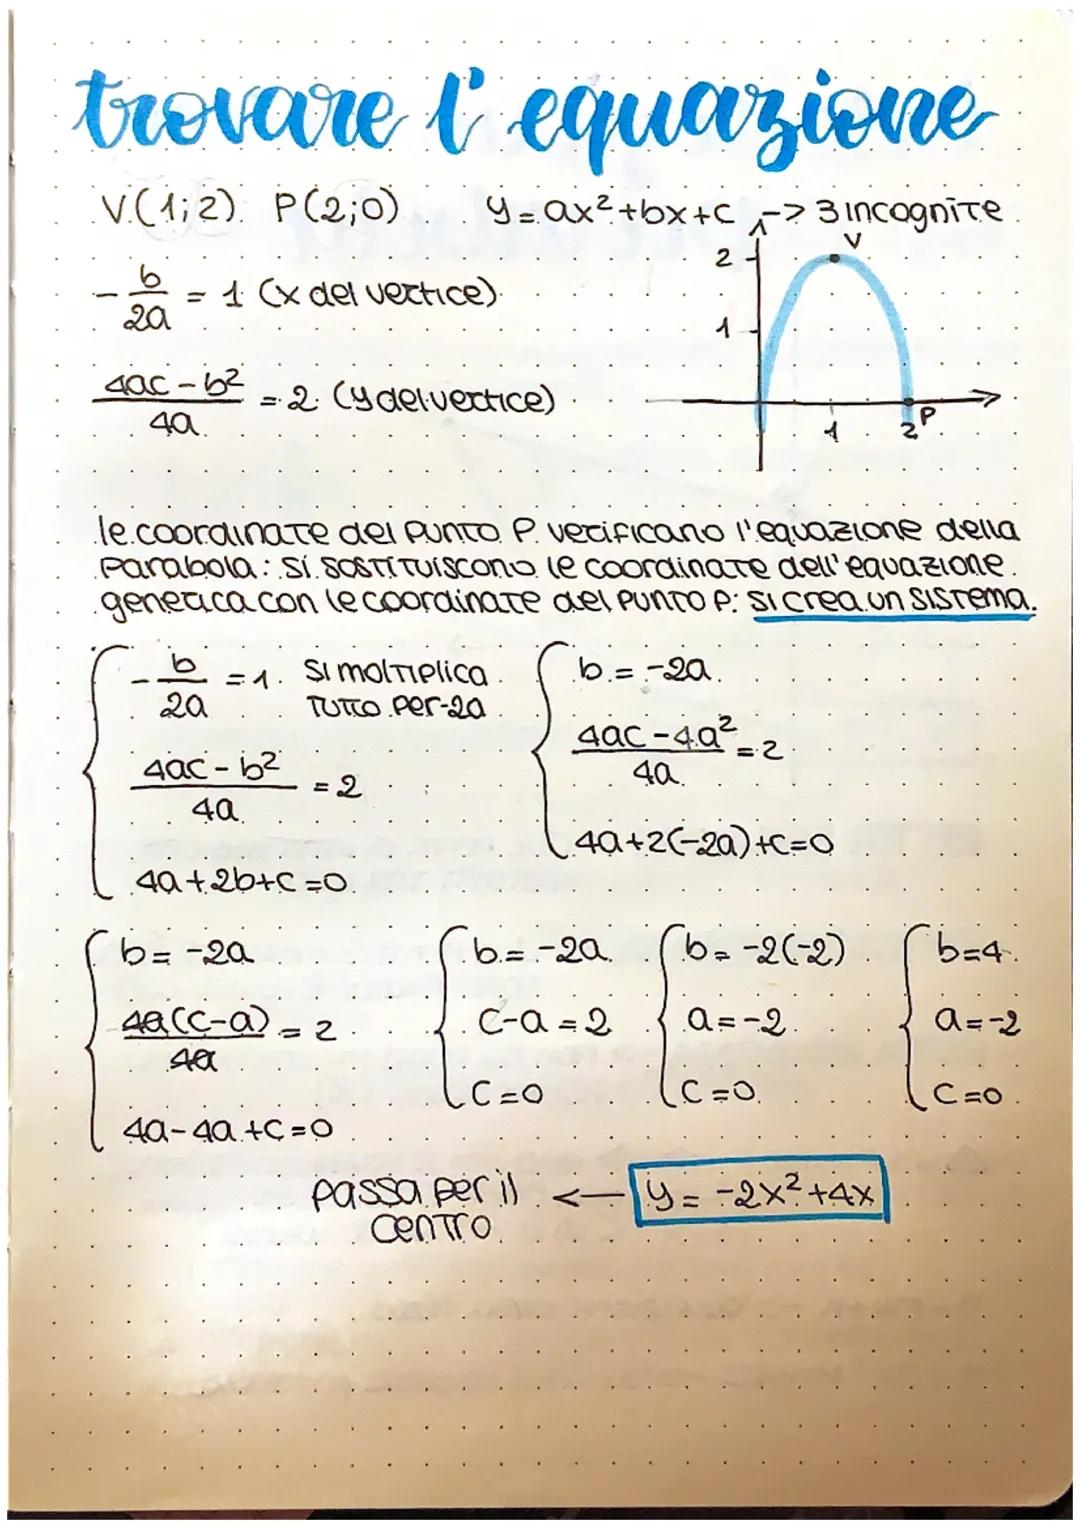 trovare l'equazione
V(1;2) P(2;0) y=ax²+bx+c -> 3 incognite
-b/2a = 1 (x del vertice)
(4ac-b²)/4a = 2 (y del vertice)
2
V
1
1
2
P
le coordinate del punto P verificano l'equazione della
parabola: si sostituiscono le coordinate dell'equazione
generica con le coordinate del punto P: si crea un sistema.
-b/2a = 1 si moltiplica
tutto per -2a
(4ac-b²)/4a = 2
4a+2b+c=0
b=-2a
(4ac-4a²)/4a = 2
4a+2(-2a)+c=0
b=-2a
4a(c-a)/4a = 2
4a-4a+c=0
b=-2a
c-a=2
c=0
b=-2(-2)
a=-2
c=0
b=4
a=-2
c=0
passa per il <— y=-2x²+4x
centro